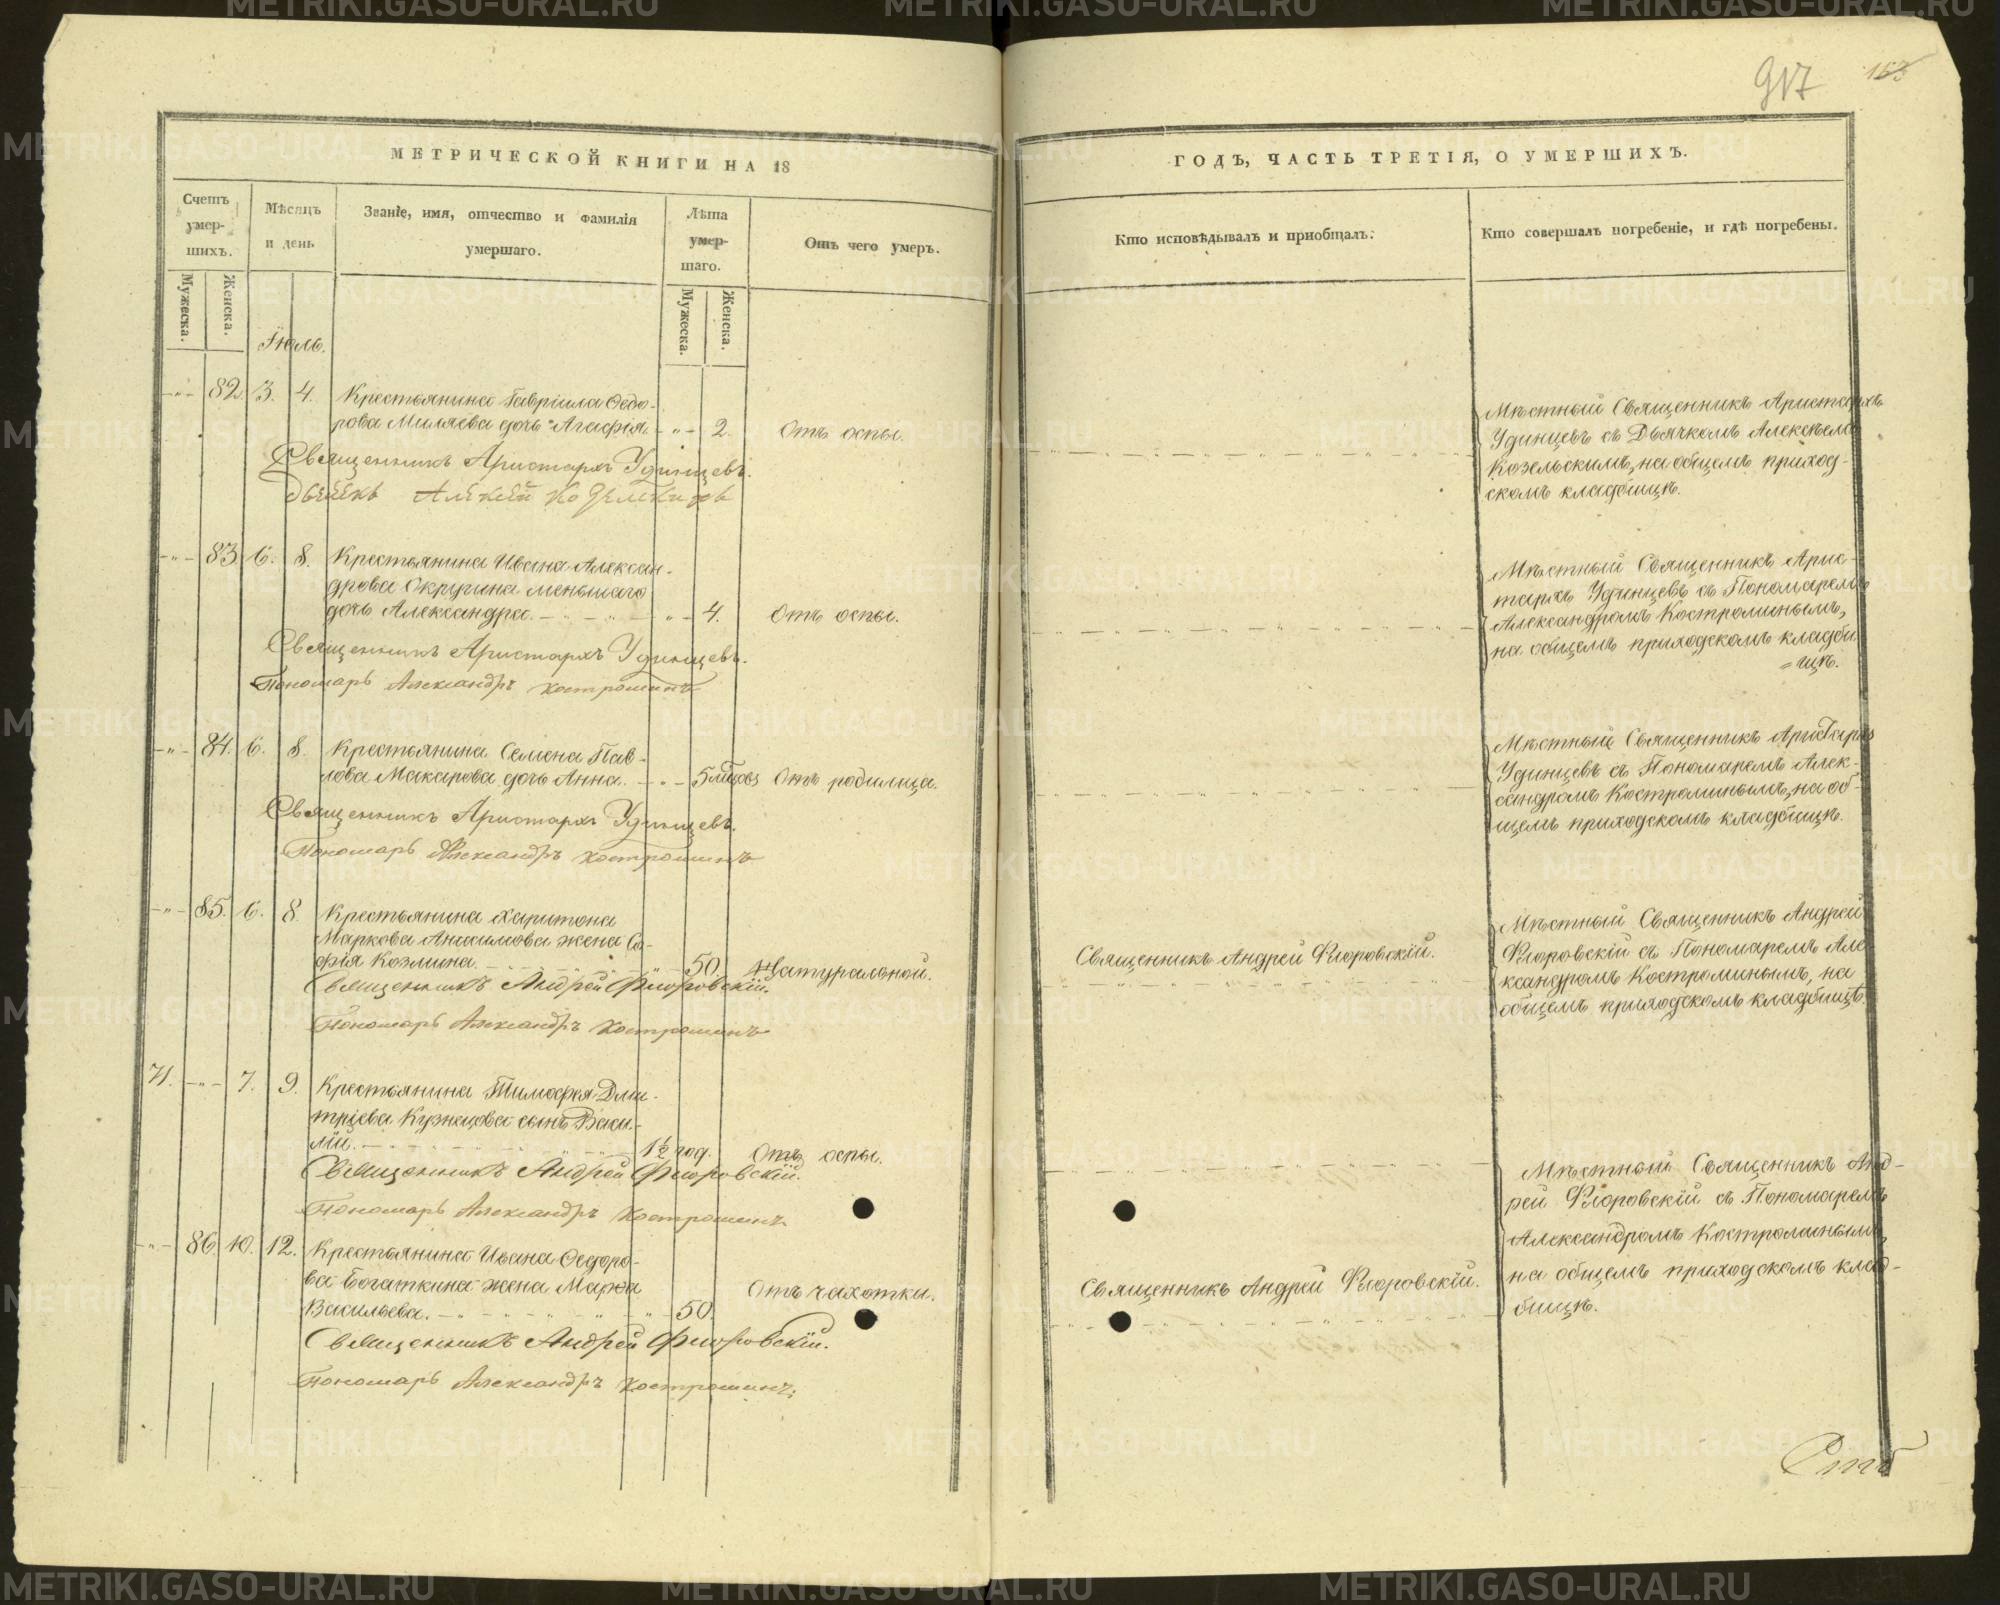 917
153
МЕТРИЧЕСКОЙ КНИГИ НА 18
ГОДЪ, ЧАСТЬ ТРЕТІЯ, О УМЕРШИХЪ.
Счетъ умер-шихъ.
Мужеска.
Женска.
Мѣсяцъ и день
Званіе, имя, отчество и фамилія умершаго.
Лѣта умер-шаго.
Мужеска.
Женска.
Отъ чего умеръ.
Кто исповѣдывалъ и пріобщалъ.
Кто совершалъ погребеніе, и гдѣ погребены.
Іюль.
82. 3. 4. Крестьянина Гавріила Ѳедо-
рова Миляева дочь Агафія. 2. Отъ оспы.
Священникъ Аристархъ Удинцевъ.
Дьячекъ Алексей Козельскихъ
Мѣстный Священникъ Аристархъ
Удинцевъ съ Дьячкомъ Алексѣемъ
Козельскимъ, на общемъ приход-
скомъ кладбищѣ.
83. 6. 8. Крестьянина Ивана Алексан-
дрова Окулина меньшаго
дочь Александра. 4. Отъ оспы.
Священникъ Аристархъ Удинцевъ.
Пономарь Александръ Костроминъ
Мѣстный Священникъ Арис-
тархъ Удинцевъ съ Пономаремъ
Александромъ Костроминымъ,
на общемъ приходскомъ кладби-
=щѣ.
84. 6. 8. Крестьянина Семена Пав-
лова Макарова дочь Анна. 5 Отъ родимца.
Священникъ Аристархъ Удинцевъ.
Пономарь Александръ Костроминъ
Мѣстный Священникъ Аристархъ
Удинцевъ съ Пономаремъ Алек-
сандромъ Костроминымъ, на об-
щемъ приходскомъ кладбищѣ.
85. 6. 8. Крестьянина Харитона
Маркова Анисимова жена Со-
фія Козмина. 50. Натуральной.
Священникъ Андрей Флоровскій.
Пономарь Александръ Костроминъ
Священникъ Андрей Флоровскій.
Мѣстный Священникъ Андрей
Флоровскій съ Пономаремъ Але-
ксандромъ Костроминымъ, на
общемъ приходскомъ кладбищѣ.
71. 7. 9. Крестьянина Тимофея Дми-
тріева Кузнецова сынъ Васи-
лій. 1½ год. Отъ оспы.
Священникъ Андрей Флоровскій.
Пономарь Александръ Костроминъ
86. 10. 12. Крестьянина Ивана Ѳедоро-
ва Богаткина жена Марѳа
Васильева. 50. Отъ чахотки.
Священникъ Андрей Флоровскій.
Пономарь Александръ Костроминъ.
Священникъ Андрей Флоровскій.
Мѣстный Священникъ Анд-
рей Флоровскій съ Пономаремъ
Александромъ Костроминымъ
на общемъ приходскомъ клад-
бищѣ.
METRIKI.GASO-URAL.RU